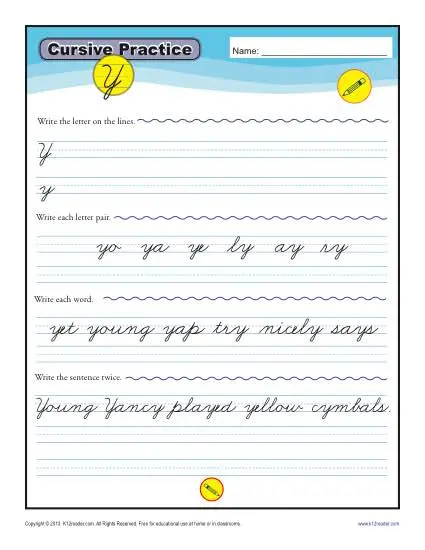 Cursive Practice
Name:
Y
Write the letter on the lines.
Y
y
Write each letter pair.
yo ya ye ly ay ry
Write each word.
yet young yap try nicely says
Write the sentence twice.
Young Yancy played yellow cymbals.
Copyright © 2013 K12reader.com. All Rights Reserved. Free for educational use at home or in classrooms. www.k12reader.com